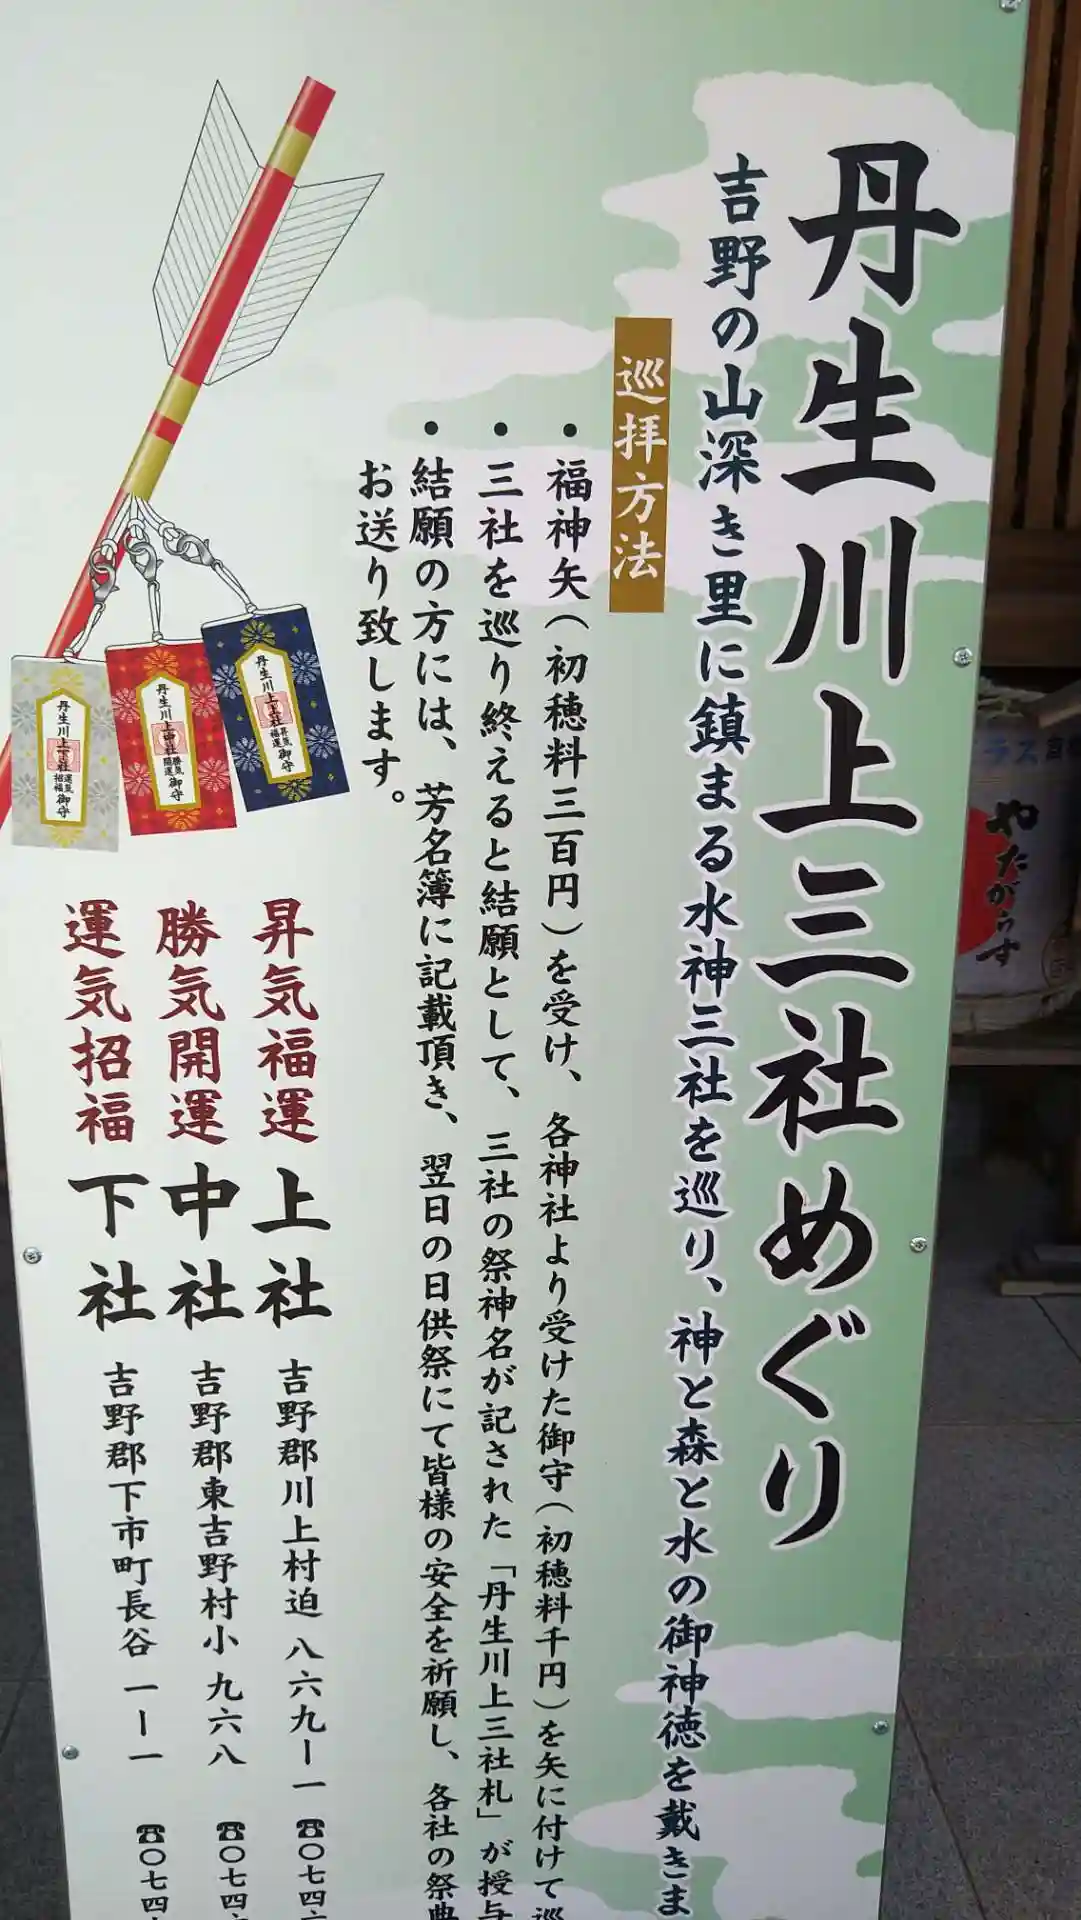 丹生川上三社めぐり
吉野の山深き里に鎮まる水神三社を巡り、神と森と水の御神徳を戴きま
巡拝方法
・福神矢(初穂料三百円)を受け、各神社より受けた御守(初穂料千円)を矢に付けて巡
・三社を巡り終えると結願として、三社の祭神名が記された「丹生川上三社札」が授与
・結願の方には、芳名簿に記載頂き、翌日の日供祭にて皆様の安全を祈願し、各社の祭典
お送り致します。
昇気福運 上社 吉野郡川上村迫 八六九ー一 ☎〇七四六
勝気開運 中社 吉野郡東吉野村小 九六八 ☎〇七四
運気招福 下社 吉野郡下市町長谷 一ー一 ☎〇七四
丹生川上上社 昇気福運 御守
丹生川上中社 勝気開運 御守
丹生川上下社 運気招福 御守
やたがらす